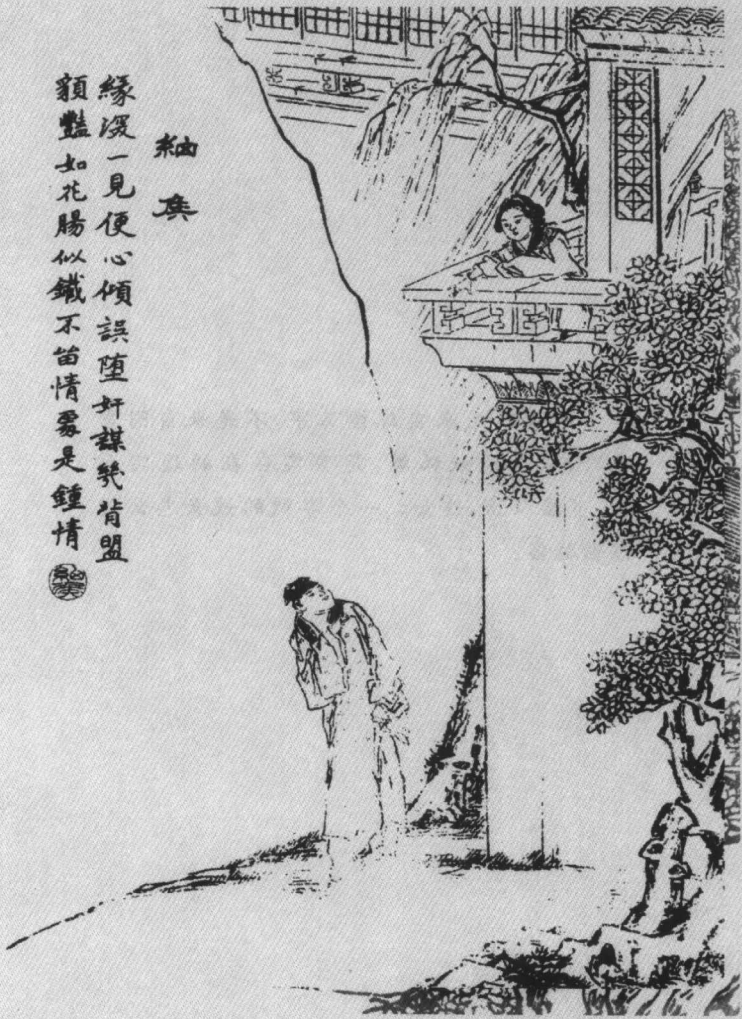 細矦
緣深一見便心傾誤堕奸謀幾背盟
貌豔如花腸似鐵不留情處是鍾情
細矦